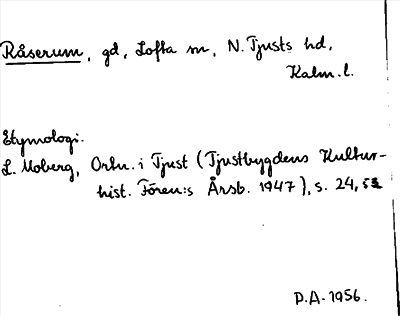 Råserum, gd, Lofta sn, N. Tjusts hd,
Kalm. l.
Etymologi.
L. Moberg, Ortn. i Tjust (Tjustbygdens Kultur-
hist. Fören:s Årsb. 1947), s. 24,
P.A. 1956.